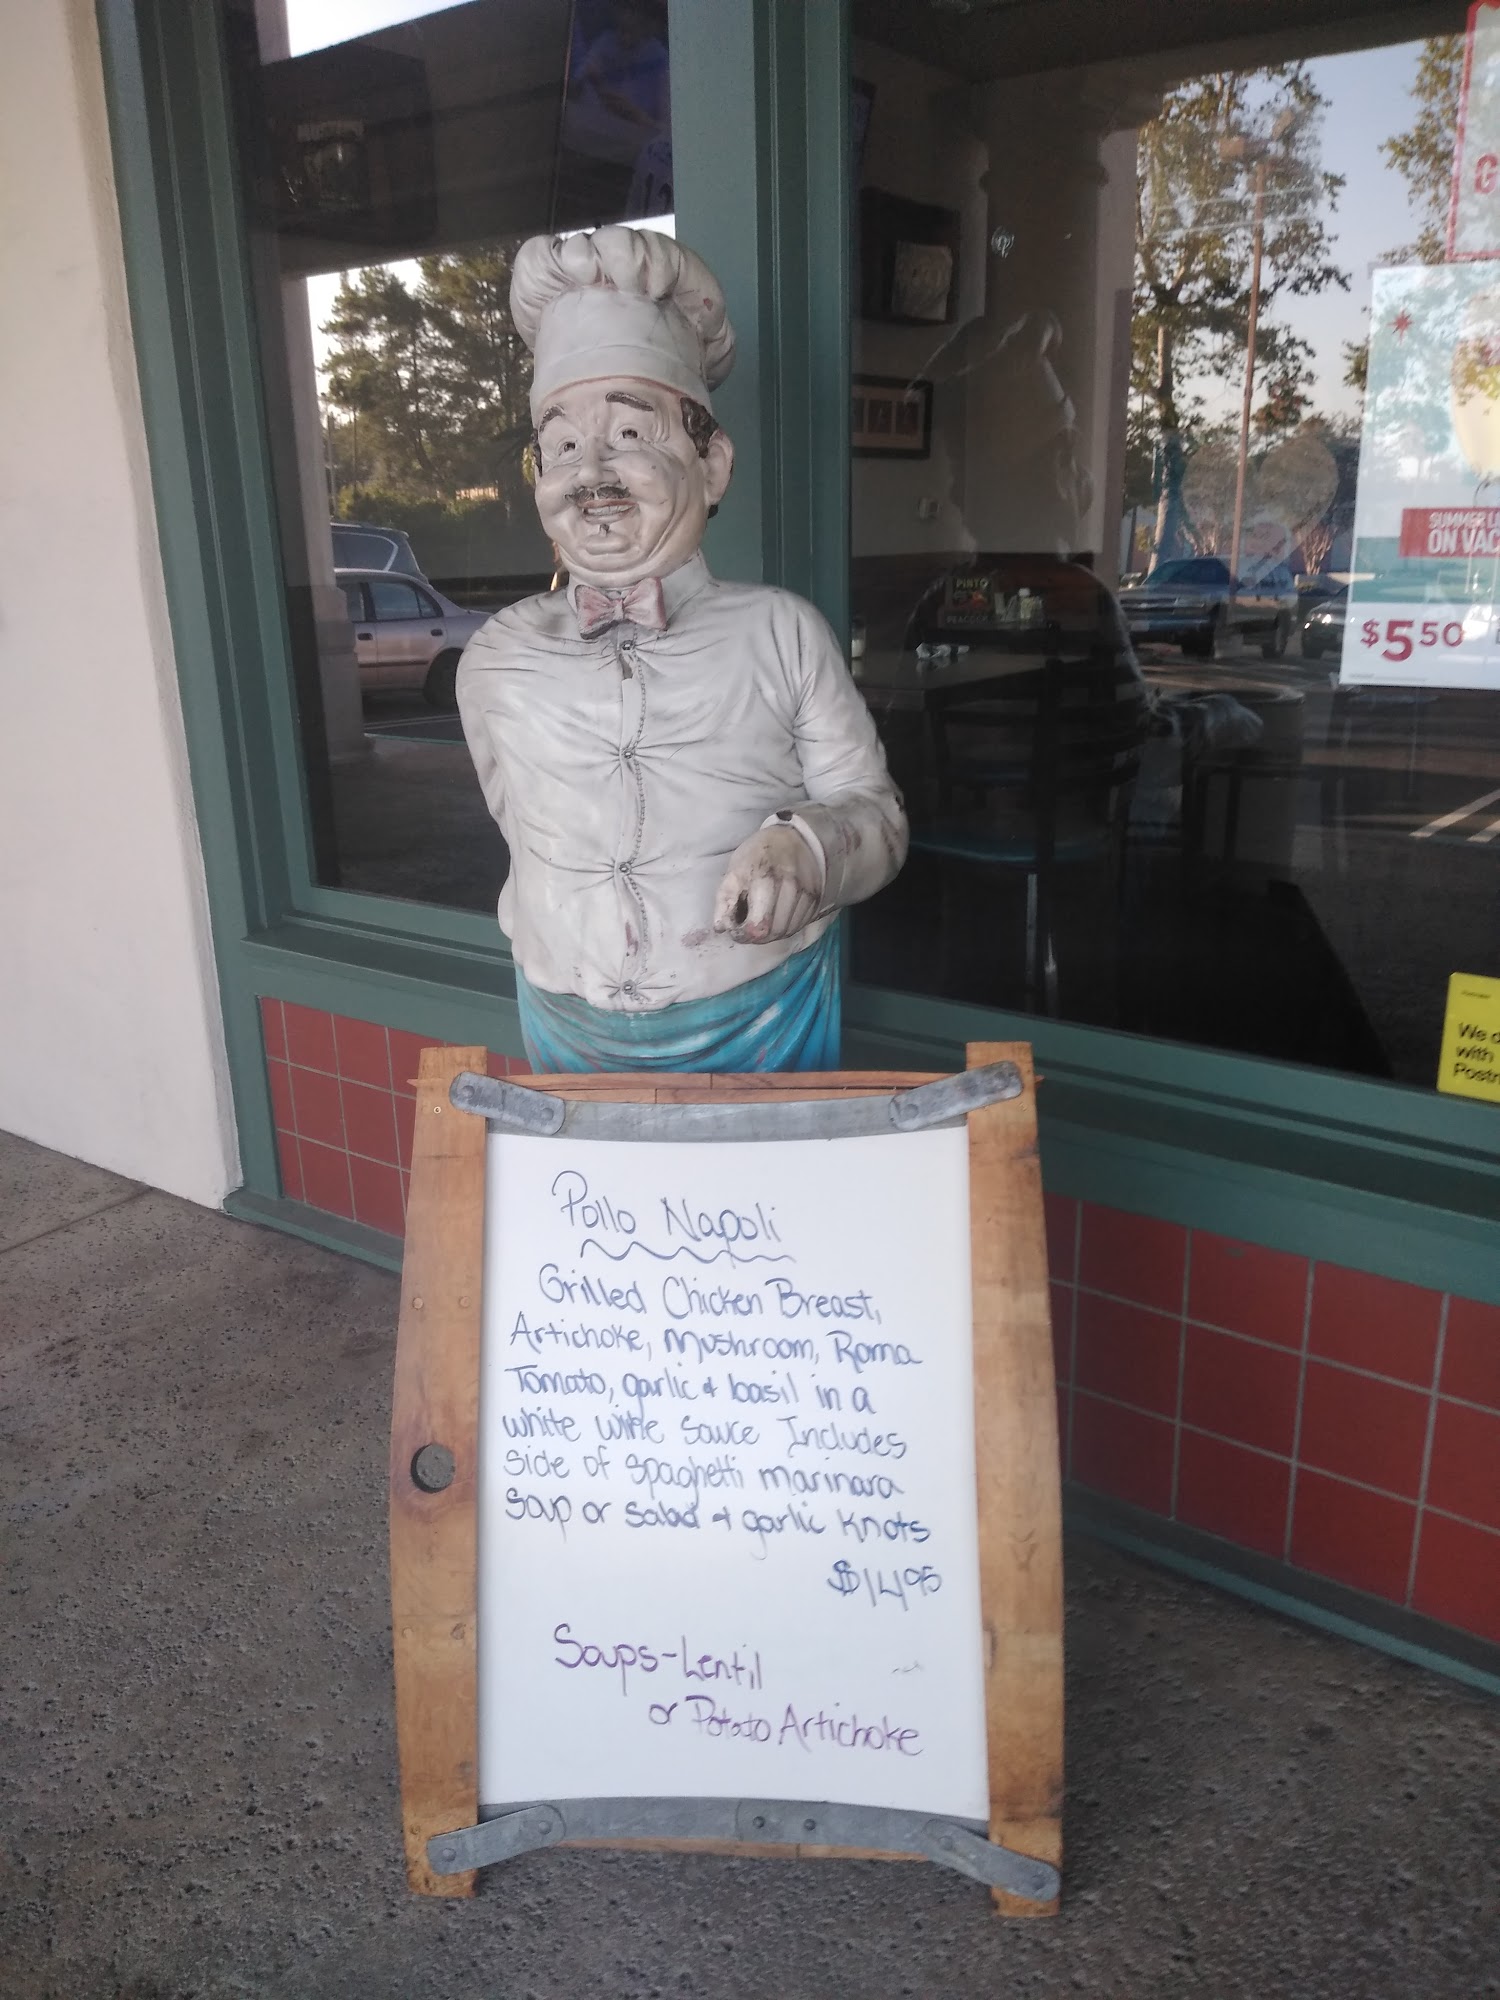 Pollo Napoli
Grilled Chicken Breast,
Artichoke, Mushroom, Roma
Tomato, garlic & basil in a
white wine sauce Includes
side of spaghetti marinara
soup or salad & garlic knots
$14.95
Soups-Lentil
or Potato Artichoke
G
SUMMER
ON VAC
$5.50
PINTO
We
with
Postm